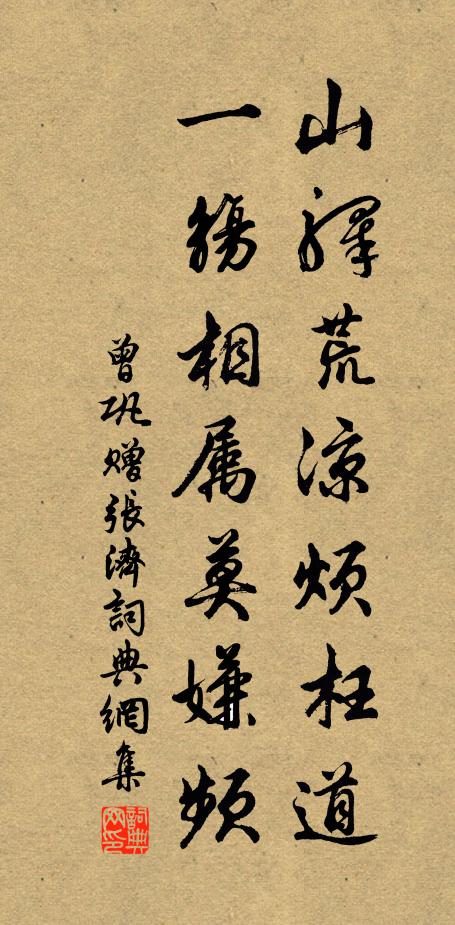 山驛荒涼煩枉道
一觴相属莫嫌頻
曾巩贈張濟詞典網集
詞典網印